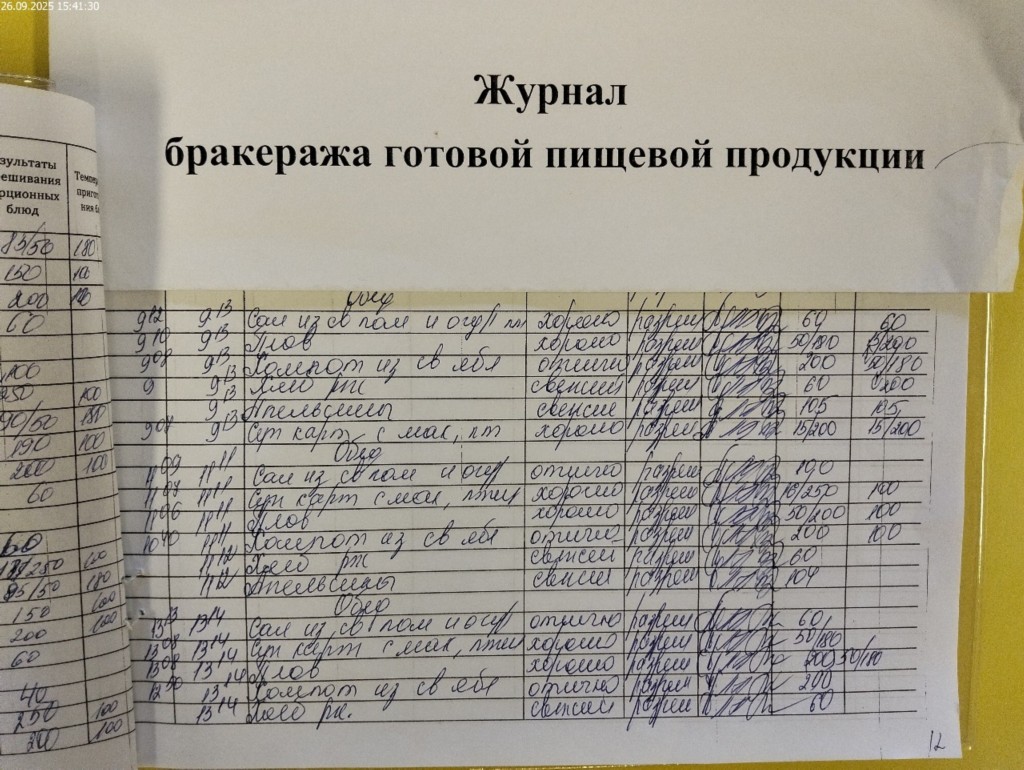 26.09.2025 15:41:30
Журнал
бракеража готовой пищевой продукции
зультаты
ешивания
рционных
блюд
Темпер
пригот
ния б
85/50 180
150 100
200
60
100
250 100
90/50 180
190 100
200 100
60
60
250 60
85/50 180
150 100
200 100
60
40
250 100
200 100
Обед
9 12 9 13 Сал из св пом и огур хорошо разреш 60 60
9 10 9 13 Плов хорошо разреш 50/180
9 08 9 13 Компот из св ябл отлично разреш 200 50/180
9 9 13 Хлеб рж свежий разреш 60 200
9 13 Апельсины свежие разреш 105 105
9 07 9 13 Суп карт с мак, пт хорошо разреш 15/200 15/200
Обед
11 09 11 11 Сал из св пом и огур отлично разреш 100
11 07 11 11 Суп карт с мак, птиц хорошо разреш 15/250 100
11 06 11 11 Плов хорошо разреш 50/200 100
10 40 11 11 Компот из св ябл отлично разреш 200 100
11 12 Хлеб рж свежий разреш 60
11 12 Апельсины свежий разреш 104
Обед
13 13 13 14 Сал из св пом и огур отлично разреш 60
13 08 13 14 Суп карт с мак, птиц хорошо разреш 50/180
13 08 13 14 Плов хорошо разреш 200 50/180
12 50 13 14 Компот из св ябл отлично разреш 200
13 14 Хлеб рж. свежий разреш 60
12